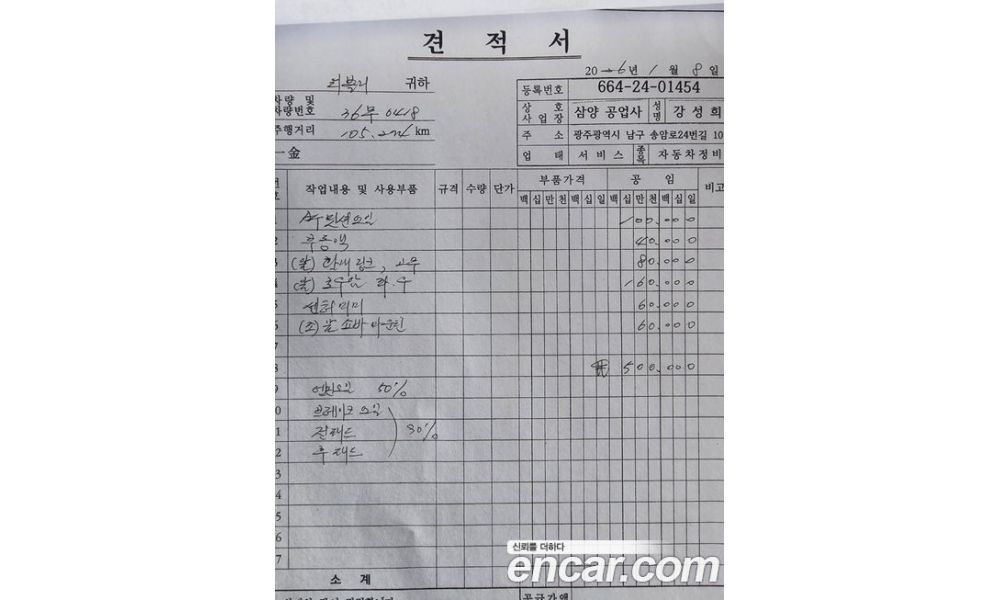 견 적 서
2026년 1월 8일
러블리 귀하
등록번호 664-24-01454
차량 및 차량번호 36부 0418
상호 사업장 삼양 공업사 성명 강성희
주행거리 105. km
주 소 광주광역시 남구 송암로24번길 10
一金
업 태 서비스 종목 자동차정비
작업내용 및 사용부품 규격 수량 단가 부품가격 공 임 비고
백 십 만 천 백 십 일 백 십 만 천 백 십 일
오일 100.000
부동액 40.000
(앞) 활대링크, 고무 80.000
(앞) 로우암 좌.우 160.000
60.000
(조) 앞 쇼바 마운틴 60.000
₩ 500.000
엔진오일 50%
브레이크오일
전패드 80%
후패드
소 계
공급가액
신뢰를 더하다
encar.com